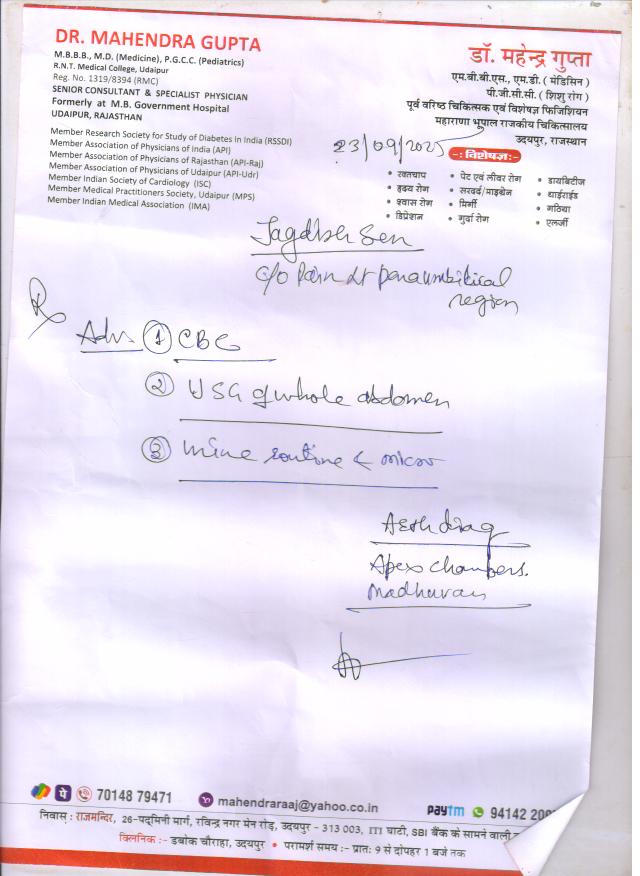 DR. MAHENDRA GUPTA
M.B.B.B., M.D. (Medicine), P.G.C.C. (Pediatrics)
R.N.T. Medical College, Udaipur
Reg. No. 1319/8394 (RMC)
SENIOR CONSULTANT & SPECIALIST PHYSICIAN
Formerly at M.B. Government Hospital
UDAIPUR, RAJASTHAN
Member Research Society for Study of Diabetes in India (RSSDI)
Member Association of Physicians of India (API)
Member Association of Physicians of Rajasthan (API-Raj)
Member Association of Physicians of Udaipur (API-Udr)
Member Indian Society of Cardiology (ISC)
Member Medical Practitioners Society, Udaipur (MPS)
Member Indian Medical Association (IMA)
डॉ. महेन्द्र गुप्ता
एम.बी.बी.एस., एम.डी. ( मेडिसिन )
पी.जी.सी.सी. ( शिशु रोग )
पूर्व वरिष्ठ चिकित्सक एवं विशेषज्ञ फिजिशियन
महाराणा भूपाल राजकीय चिकित्सालय
उदयपुर, राजस्थान
23/09/2025
-: विशेषज्ञ:-
• रक्तचाप • पेट एवं लीवर रोग • डायबिटीज
• हृदय रोग • सरदर्द/माइग्रेन • थाईराईड
• श्वास रोग • मिर्गी • गठिया
• डिप्रेशन • गुर्दा रोग • एलर्जी
Jagdish Sen
c/o Pain Lt paraumbilical
region
Rx
Adv. 1 CBC
2 USG of whole abdomen
3 urine routine & micro
Arth diag
Apex chambers.
Madhuvan
70148 79471 mahendraraaj@yahoo.co.in paytm 94142
निवास : राजमन्दिर, 26-पद्मिनी मार्ग, रविन्द्र नगर मेन रोड़, उदयपुर - 313 003, ITI घाटी, SBI बैंक के सामने वाली
क्लिनिक :- डबोक चौराहा, उदयपुर • परामर्श समय :- प्रातः 9 से दोपहर 1 बजे तक